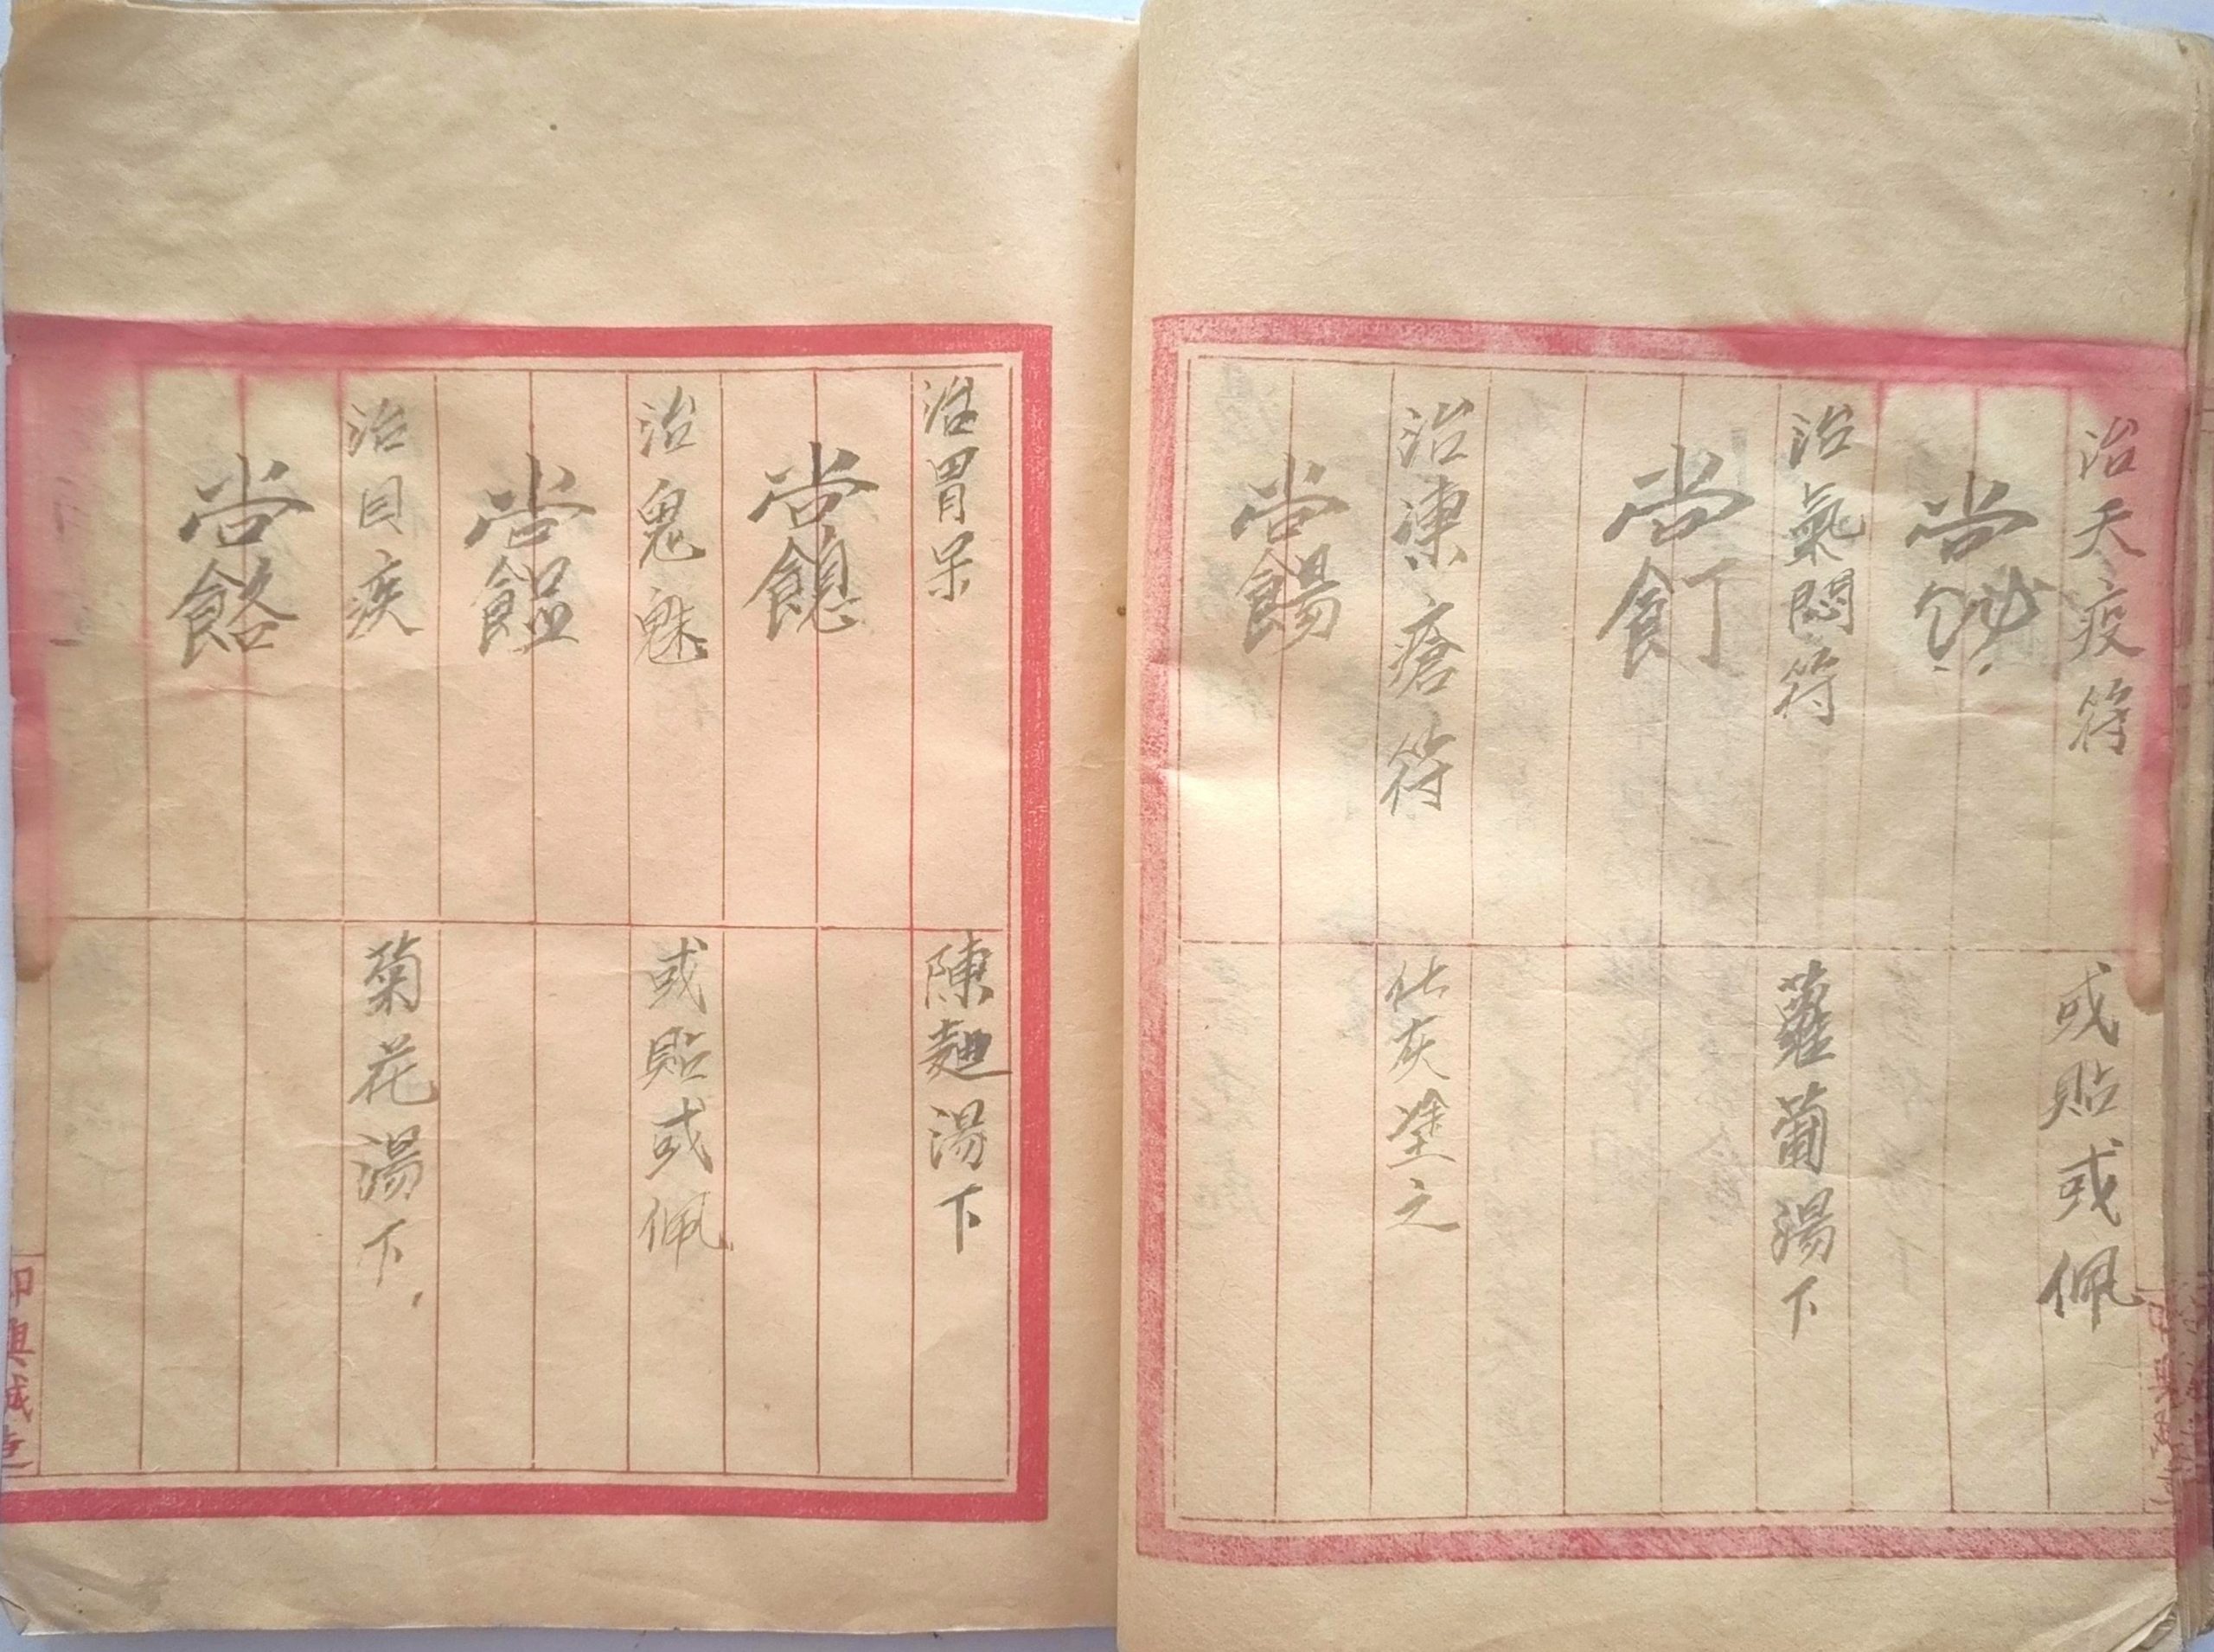 治天疫符
或貼或佩
尚
治氣悶符
蘿蔔湯下
尚飣
治凍瘡符
化灰塗之
尚餳
治胃呆
陳麯湯下
尚
治鬼魅
或貼或佩
尚
治目疾
菊花湯下
尚餎